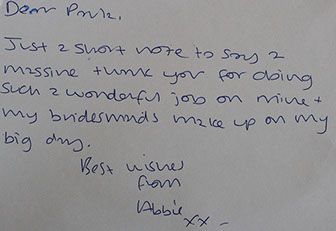 Dear Paula,
Just a short note to say a
massive thank you for doing
such a wonderful job on mine +
my bridesmaids make up on my
big day.
Best wishes
from
Abbie
xx